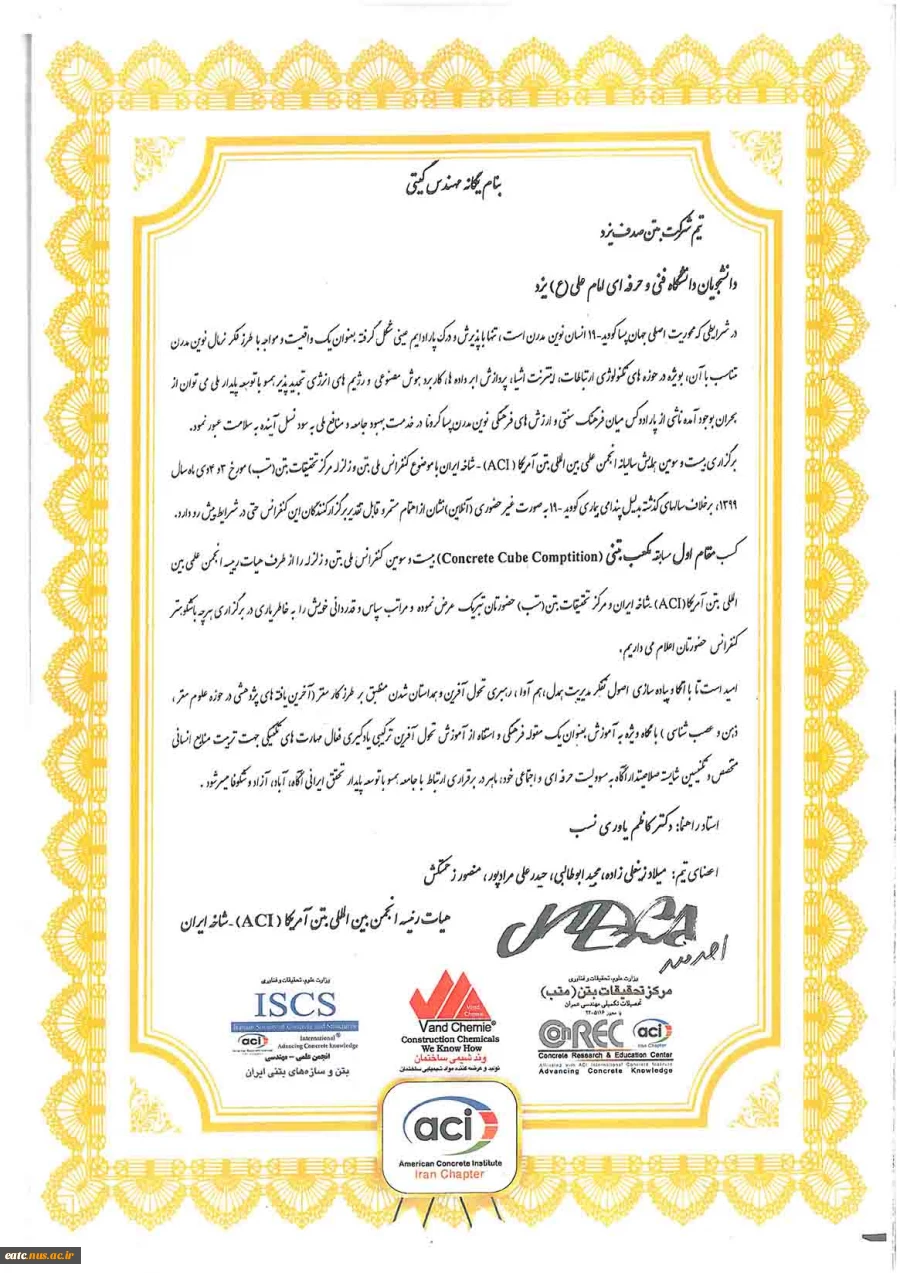 بنام یگانه مهندس گیتی
تیم شرکت بتن صدف یزد
دانشجویان دانشگاه فنی و حرفه ای امام علی (ع) یزد
در شرایطی که محوریت اصلی جهان پسا کووید-۱۹ انسان نوین مدرن است، تنها با پذیرش و درک پارادایم عینی شکل گرفته بعنوان یک واقعیت و مواجه با طرز فکر نرمال نوین مدرن
متناسب با آن، بویژه در حوزه های تکنولوژی ارتباطات، اینترنت اشیا، پردازش ابر داده ها، کاربرد هوش مصنوعی و رژیم های انرژی تجدید پذیر همسو با توسعه پایدار ملی می توان از
بحران بوجود آمده ناشی از پارادوکس میان فرهنگ سنتی و ارزش های فرهنگی نوین مدرن پسا کرونا در خدمت بهبود جامعه و منافع ملی به سود نسل آینده به سلامت عبور نمود.
برگزاری بیست و سومین همایش سالیانه انجمن علمی بین المللی بتن آمریکا (ACI) - شاخه ایران با موضوع کنفرانس ملی بتن و زلزله مرکز تحقیقات بتن (متب) مورخ ۳ و ۴ دی ماه سال
۱۳۹۹، برخلاف سالهای گذشته بدلیل پندامی بیماری کووید -۱۹ به صورت غیر حضوری (آنلاین) نشان از اهتمام مستمر و قابل تقدیر برگزارکنندگان این کنفرانس حتی در شرایط پیش رو دارد.
کسب مقام اول مسابقه مکعب بتنی (Concrete Cube Comptition) بیست و سومین کنفرانس ملی بتن و زلزله را از طرف هیات رییسه انجمن علمی بین
المللی بتن آمریکا (ACI) - شاخه ایران و مرکز تحقیقات بتن (متب) حضورتان تبریک عرض نموده و مراتب سپاس و قدردانی خویش را به خاطر یاری در برگزاری هرچه باشکوهتر
کنفرانس حضورتان اعلام می داریم.
امید است تا با اتکا و پیاده سازی اصول تفکر مدیریت همدل، هم آوا، رهبری تحول آفرین و همداستان شدن منطبق بر طرز کار مغز (آخرین یافته های پژوهشی در حوزه علوم مغز،
ذهن و عصب شناسی) با نگاه ویژه به آموزش بعنوان یک مقوله فرهنگی و استفاده از آموزش تحول آفرین ترکیبی یادگیری فعال مهارت های تکنیکی جهت تربیت منابع انسانی
متخصص و تکنیسین شایسته صلاحیتدار آگاه به مسوولیت حرفه ای و اجتماعی خود، ماهر در برقراری ارتباط با جامعه همسو با توسعه پایدار تحقق ایرانی آگاه، آباد، آزاد و شکوفا میسر شود.
استاد راهنما: دکتر کاظم یاوری نسب
اعضای تیم: میلاد زینعلی زاده، مجید ابوطالبی، حیدر علی مرادپور، منصور زحمتکش
هیات رئیسه انجمن بین المللی بتن آمریکا (ACI) - شاخه ایران
وزارت علوم، تحقیقات و فناوری
ISCS
Iranian Society of Concrete and Structures
aci International®
Advancing Concrete Knowledge
انجمن علمی - مهندسی
بتن و سازه‌های بتنی ایران
Vand Chemie
Vand Chemie®
Construction Chemicals
We Know How
وند شیمی ساختمان
تولید و عرضه کننده مواد شیمیایی ساختمان
وزارت علوم، تحقیقات و فناوری
مرکز تحقیقات بتن (متب)
تحصیلات تکمیلی مهندسی عمران
ConREC aci
Iran Chapter
Concrete Research & Education Center
Affiliated with ACI International Concrete Institute
Advancing Concrete Knowledge
aci
American Concrete Institute
Iran Chapter
eatc.nus.ac.ir